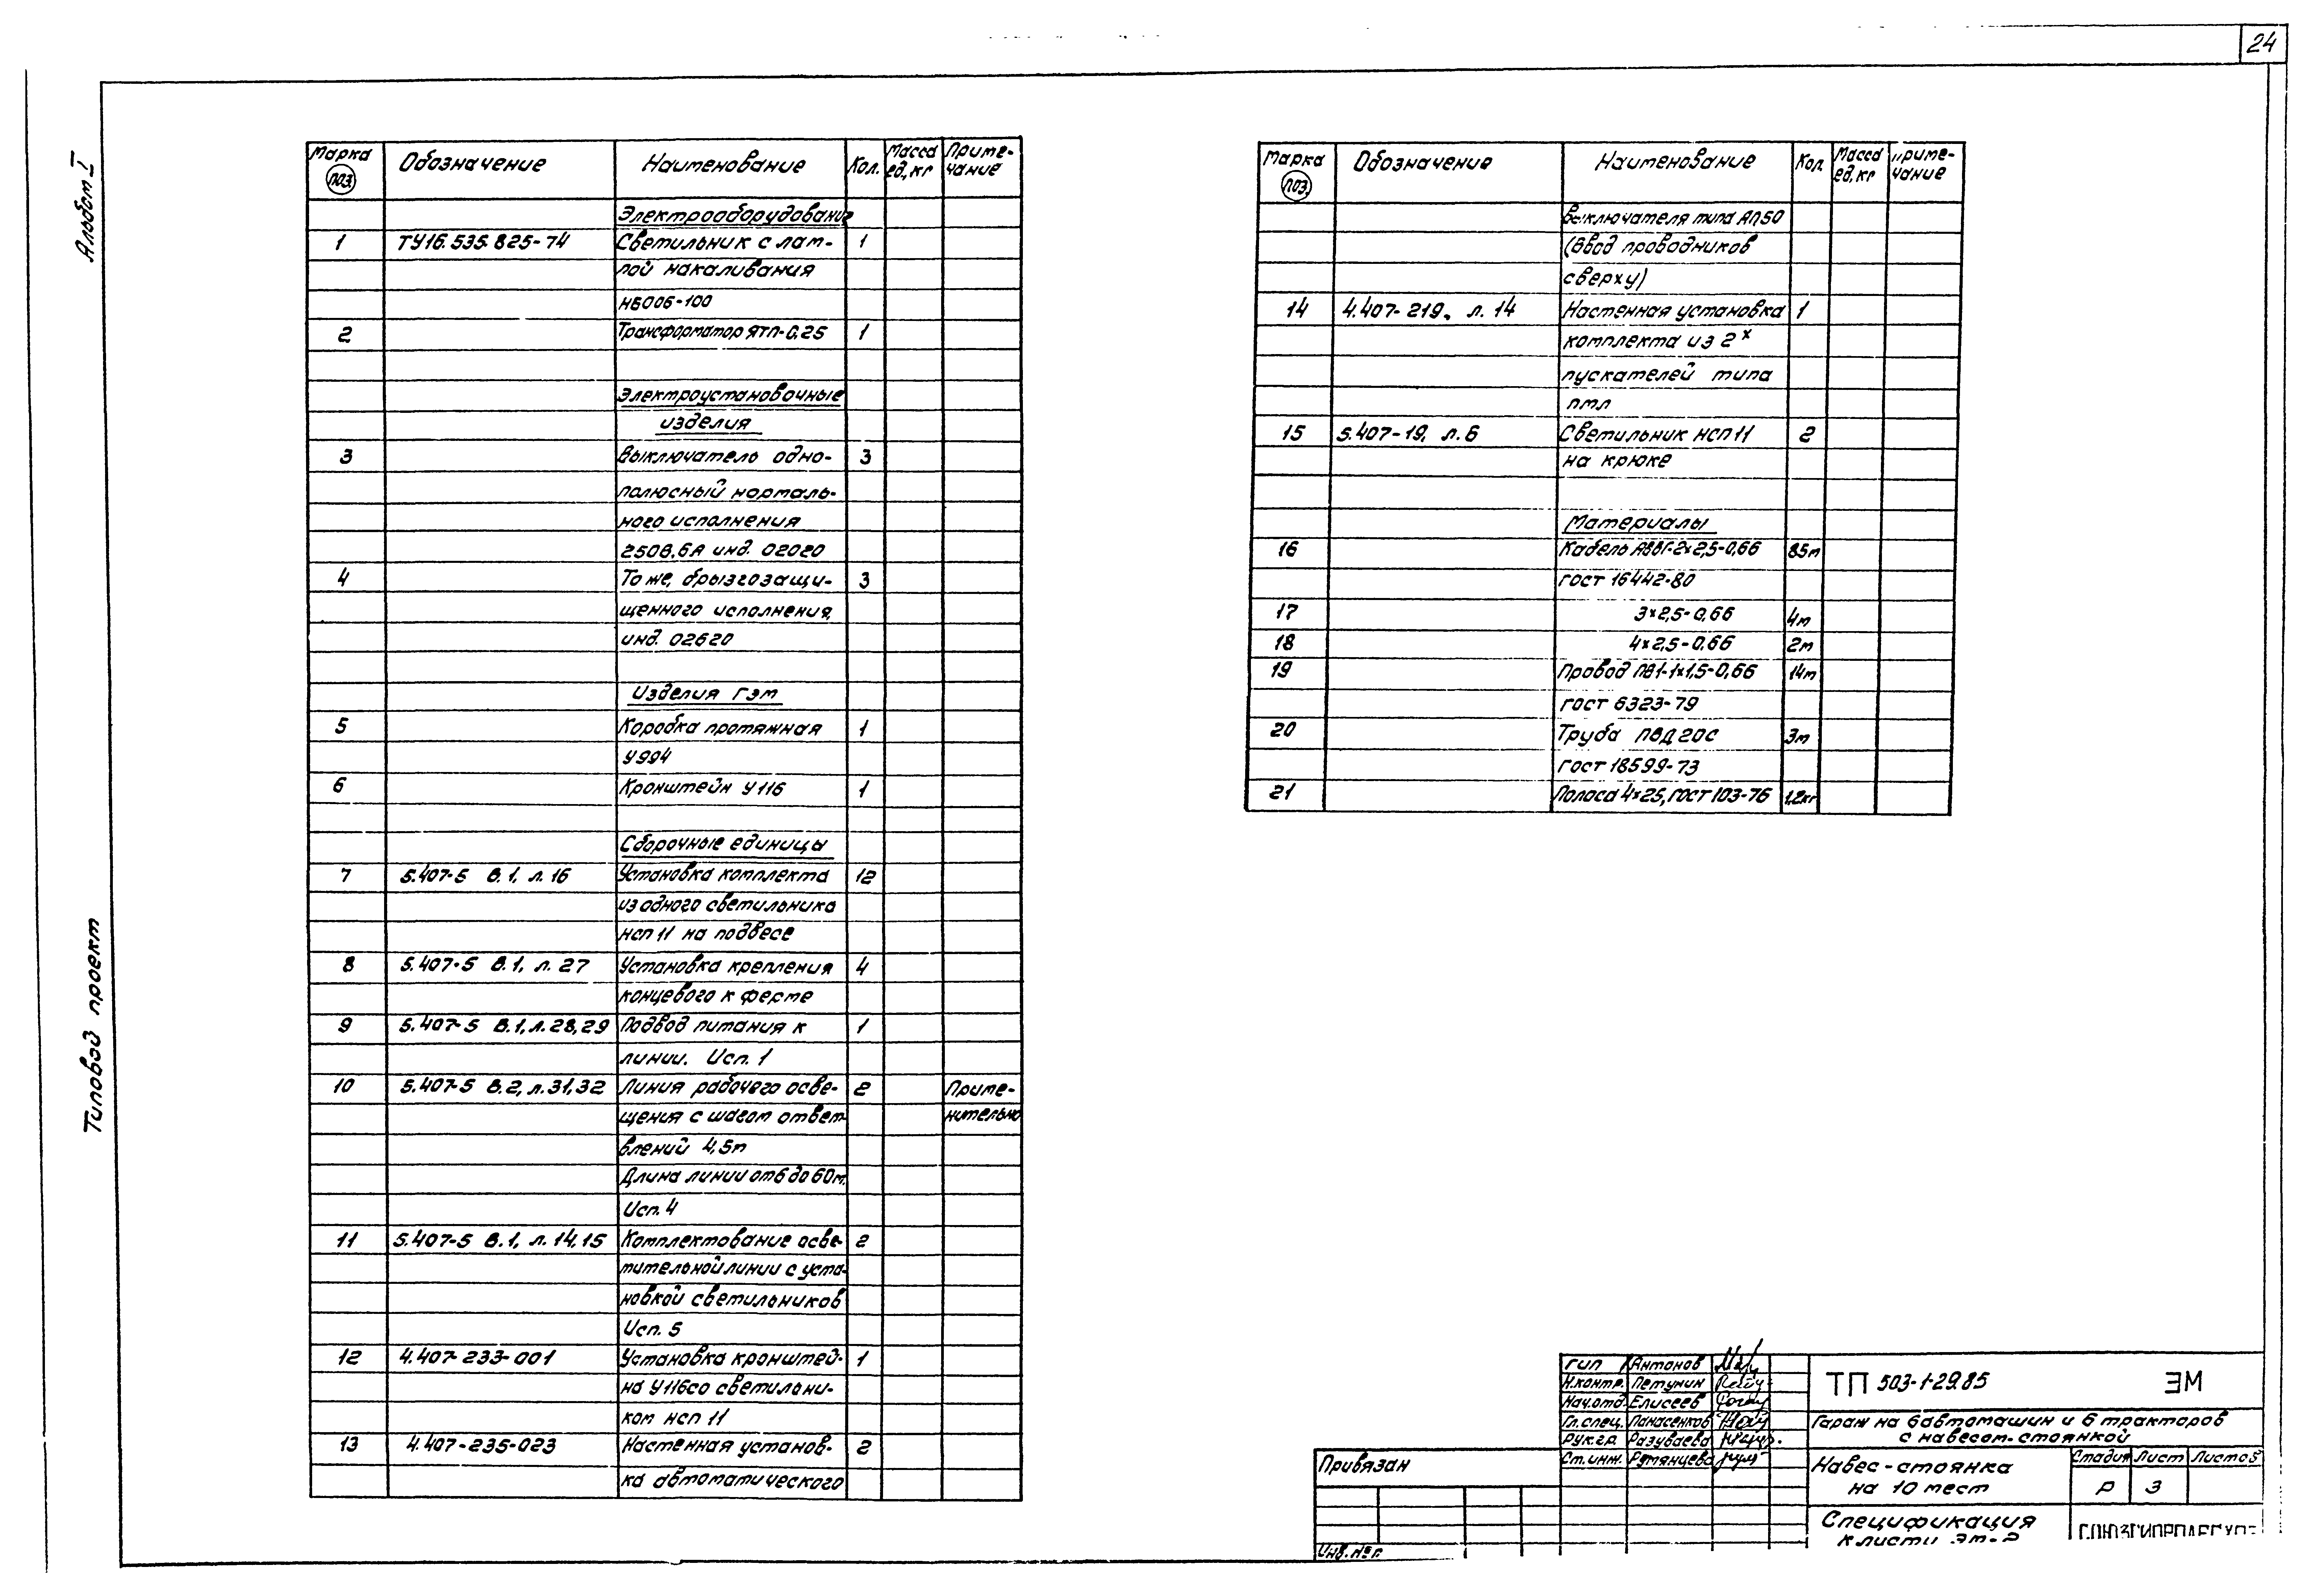 24
Альбом I
Типовой проект
Марка поз. Обозначение Наименование Кол. Масса ед, кг Приме-чание
Электрооборудование
1 ТУ16.535.825-74 Светильник с лам- 1
пой накаливания
НБ006-100
2 Трансформатор ЯТП-0,25 1
Электроустановочные
изделия
3 Выключатель одно- 3
полюсный нормаль-
ного исполнения
250В,6А инд. 02020
4 То же, брызгозащи- 3
щенного исполнения,
инд. 02620
Изделия ГЭМ
5 Коробка протяжная 1
У994
6 Кронштейн У116 1
Сборочные единицы
7 5.407-5 В.1, л.16 Установка комплекта 12
из одного светильника
НСП 11 на подвесе
8 5.407-5 В.1, л. 27 Установка крепления 4
концевого к ферме
9 5.407-5 В.1, л.28,29 Подвод питания к 1
линии. Исп. 1
10 5.407-5 В.2, л.31,32 Линия рабочего осве- 2 Приме-
щения с шагом ответ- нительно
влений 4,5м
Длина линии от 6 до 60м.
Исп. 4
11 5.407-5 В.1, л. 14,15 Комплектование осве- 2
тительной линии с уста-
новкой светильников
Исп. 5
12 4.407-233-001 Установка кронштей- 1
на У116 со светильни-
ком НСП 11
13 4.407-235-023 Настенная установ- 2
ка автоматического
Марка поз. Обозначение Наименование Кол. Масса ед, кг Приме-чание
выключателя типа АП50
(ввод проводников
сверху)
14 4.407-219, л. 14 Настенная установка 1
комплекта из 2х
пускателей типа
ПМЛ
15 5.407-19, л.6 Светильник НСП 11 2
на крюке
Материалы
16 Кабель АВВГ-2х2,5-0,66 85м
ГОСТ 16442-80
17 3х2,5-0,66 4м
18 4х2,5-0,66 2м
19 Провод ПВ1-1х1,5-0,66 14м
ГОСТ 6323-79
20 Труба ПВД 20С 3м
ГОСТ 18599-73
21 Полоса 4х25, ГОСТ 103-76 1,2кг
ГИП Антонов
Н.контр. Петунин
Нач.отд. Елисеев
Гл.спец. Панасенков
Рук.гр. Разуваева
Ст.инж. Румянцева
Привязан
Инв. №
ТП 503-1-29.85 ЭМ
Гараж на 6 автомашин и 6 тракторов
с навесом-стоянкой
Навес-стоянка
на 10 мест
Стадия Лист Листов
Р 3
Спецификация
к листу ЭМ-2